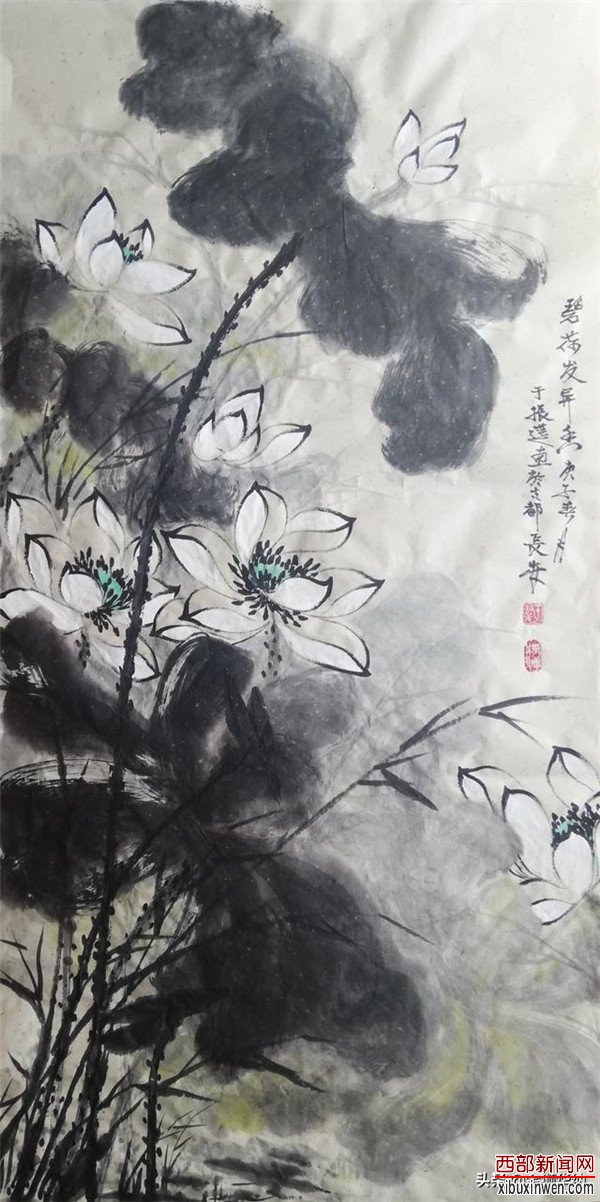 碧荷发异香庚子春月
于振选画于古都长安
西部新闻网
xibuxinwen.com